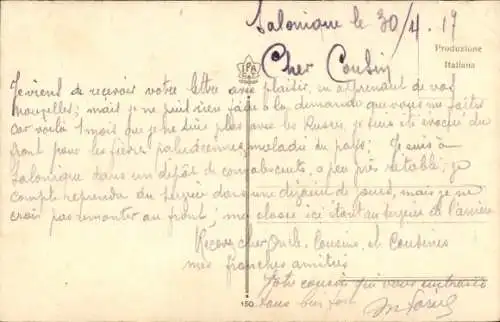 Salonique le 30/4. 17
Cher Cousin
Produzione
Italiana
IPA
Je viens de recevoir votre lettre avec plaisir, en apprenant de vos
nouvelles; mais je ne puis rien faire à la demande que vous me faites
car voilà 1 mois que je ne suis plus avec les Russes, je suis évacué du
front pour les fièvres paludéennes, maladie du pays; Je suis à
Salonique dans un dépôt de convalescents, a peu près rétabli; je
compte reprendre du service dans une dizaine de jours, mais je ne
crois pas remonter au front; ma classe ici étant au service à l'arrière
Recevez cher Oncle, Cousine, et Cousines
mes franches amitiés
Votre cousin qui vous embrasse
tous bien fort
150